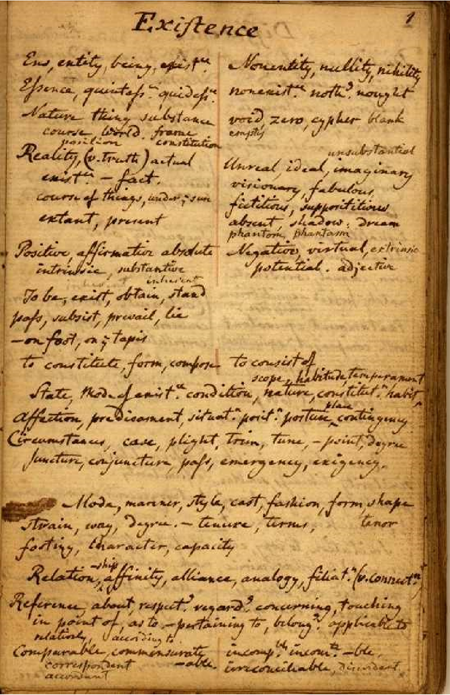 1
Existence
Ens, entity, being, existce
Nonentity, nullity, nihility
Essence, quintesse quidesse
nonexistce nothg nought
Nature thing substance
void, zero, cypher blank
course, world. frame
empty
position constitution
unsubstantial
Reality, (v. truth) actual
Unreal, ideal, imaginary
existce — fact.
visionary, fabulous,
course of things, under ye sun
fictitious, supposititious
extant, present
absent shadow. dream
phantom phantasm
Positive, affirmative absolute
Negative, virtual, extrinsic
intrinsic, substantive
potential. adjective
inherent
To be, exist, obtain, stand
pass, subsist, prevail, lie
— on foot, on ye tapis
to constitute, form, compose
to consist of
scope, habitude, temperament
State, Mode of existce condition, nature, constitutn habit
place
Affection, predicament, situatn positn posture, contingency
Circumstances, case, plight, trim, tune, — point, degree
Juncture, conjuncture pass, emergency, exigency.
Mode, manner, style, cast, fashion, form, shape
Strain, way, degree. — tenure, terms, tenor
footing, character, capacity
-ship
Relation, affinity, alliance, analogy, filiatn (v. connectn
Reference, about, respectg regardg concerning, touching
in point of, as to — pertaining to, belongg applicable to
relatively, according to
Comparable, commensurate
incomple incomte -ble,
correspondent -able
irreconcileable, discordant
accordant